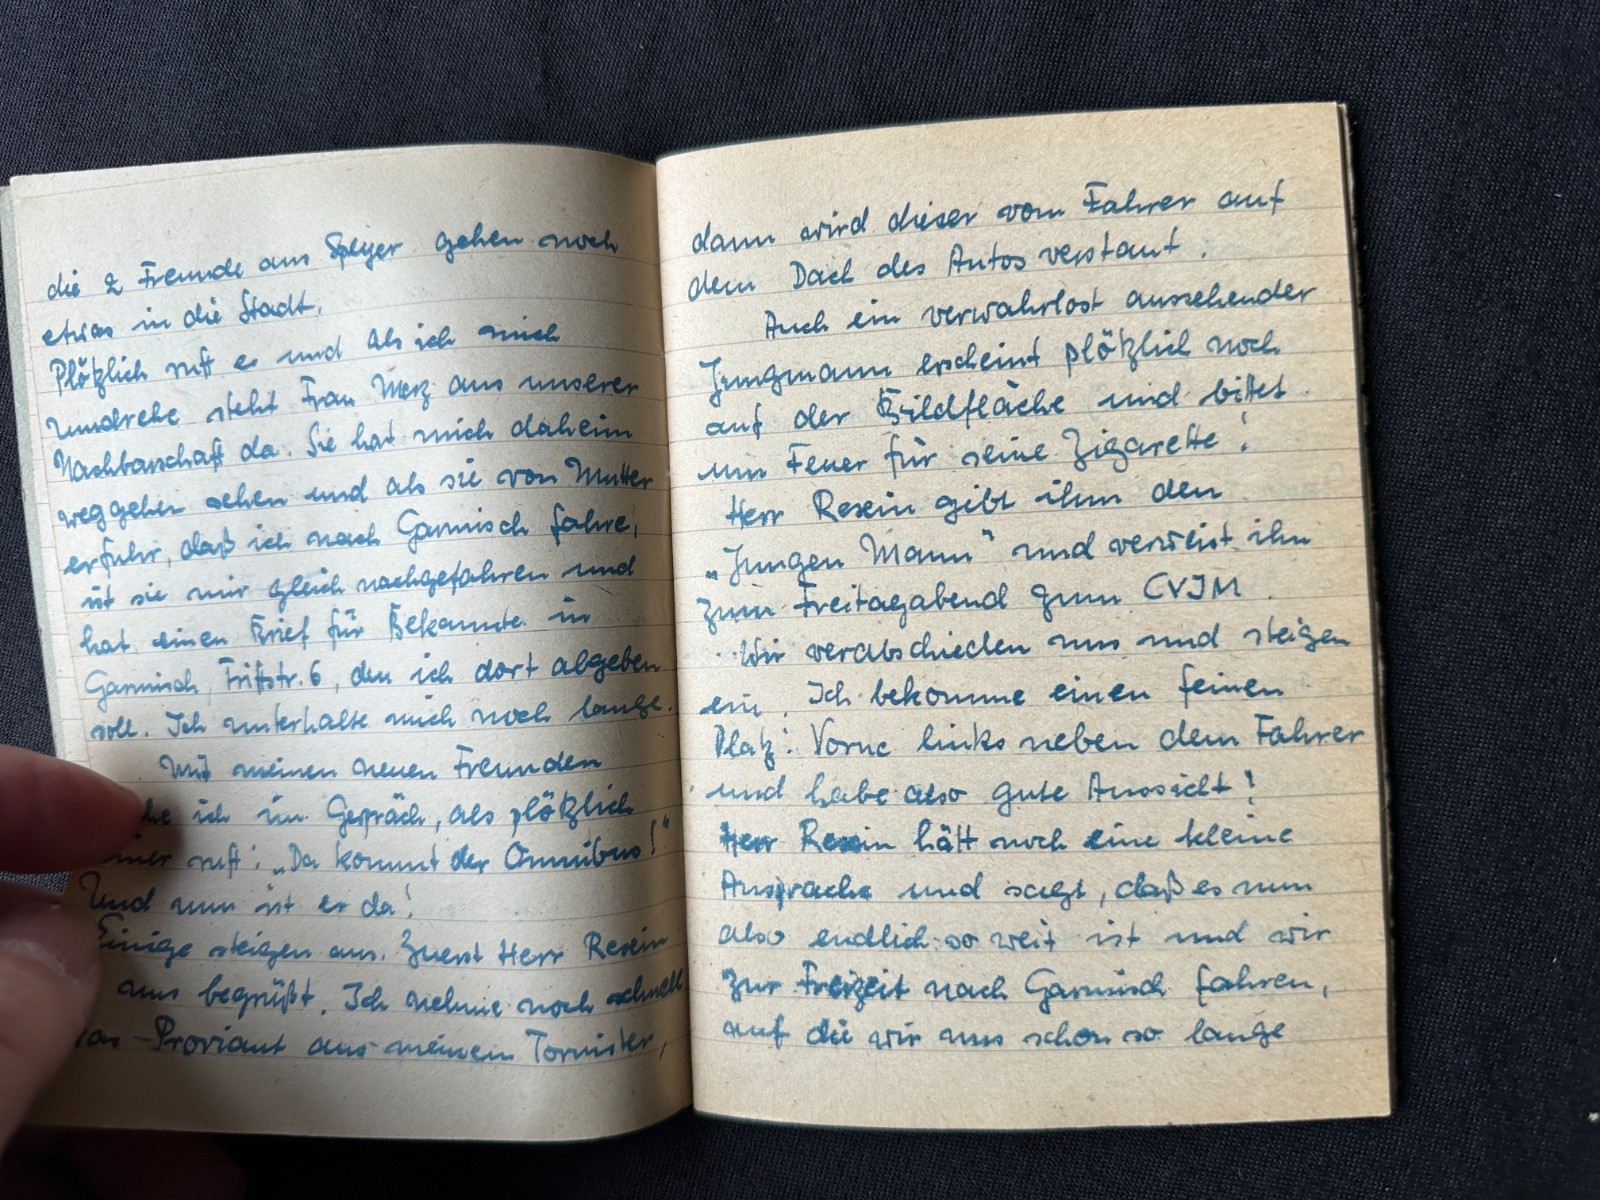 die 2 Freunde aus Speyer gehen noch
etwas in die Stadt.
Plötzlich ruft es und als ich mich
umdrehe steht Frau Merz aus unserer
Nachbarschaft da. Sie hat mich daheim
weggehen sehen und als sie von Mutter
erfuhr, daß ich nach Garmisch fahre,
ist sie mir gleich nachgefahren und
hat einen Brief für Bekannte in
Garmisch, Triftstr. 6, den ich dort abgeben
soll. Ich unterhalte mich noch lange.
Mit meinen neuen Freunden
ich im Gespräch, als plötzlich
einer ruft: „Da kommt der Omnibus!"
Und nun ist er da!
Einige steigen aus. Zuerst Herr Resein
uns begrüßt. Ich nehme noch schnell
Proviant aus meinem Tornister,
dann wird dieser vom Fahrer auf
dem Dach des Autos verstaut.
Auch ein verwahrlost aussehender
Jungmann erscheint plötzlich noch
auf der Bildfläche und bittet
um Feuer für seine Zigarette!
Herr Resein gibt ihm den
„Jungen Mann" und verweist ihn
zum Freitagabend zum CVJM.
Wir verabschieden uns und steigen
ein. Ich bekomme einen feinen
Platz: Vorne links neben dem Fahrer
und habe also gute Aussicht!
Herr Resein hält noch eine kleine
Ansprache und sagt, daß es nun
also endlich so weit ist und wir
zur Freizeit nach Garmisch fahren,
auf die wir uns schon so lange